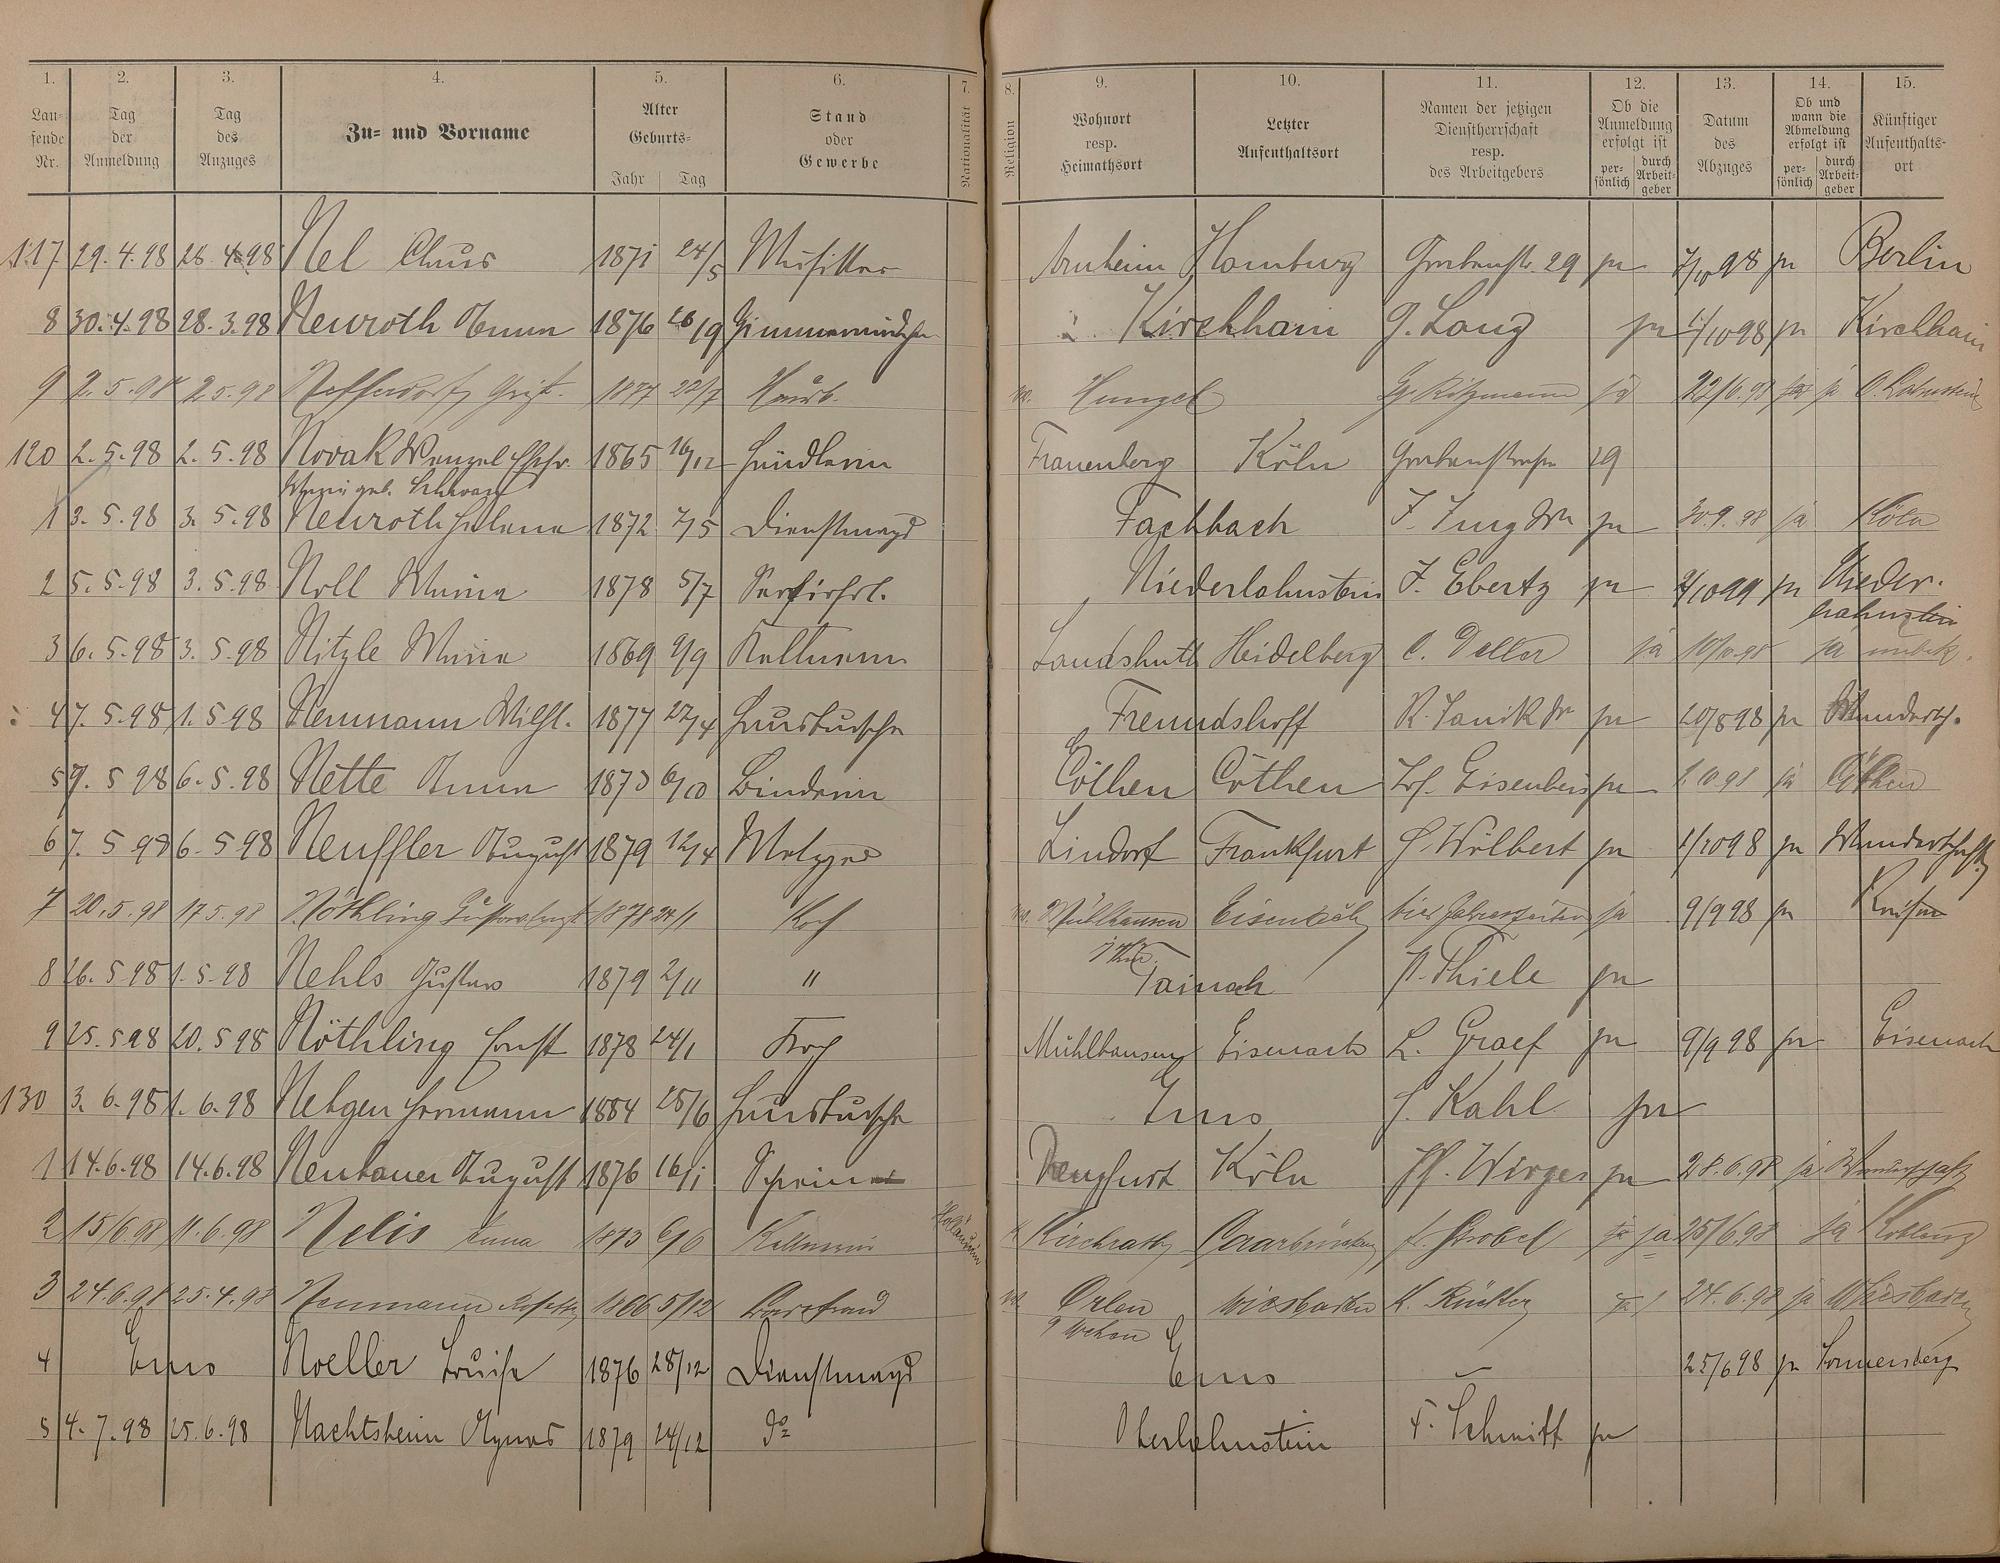 1. 2. 3. 4. 5. 6. 7. 8. 9. 10. 11. 12. 13. 14. 15.
Lau-
fende
Nr.
Tag
der
Anmeldung
Tag
des
Anzuges
Zu- und Vorname
Alter
Geburts-
Jahr Tag
Stand
oder
Gewerbe
Nationalität
Religion
Wohnort
resp.
Heimathsort
Letzter
Aufenthaltsort
Namen der jetzigen
Dienstherrschaft
resp.
des Arbeitgebers
Ob die
Anmeldung
erfolgt ist
per-
sönlich
durch
Arbeit-
geber
Datum
des
Abzuges
Ob und
wann die
Abmeldung
erfolgt ist
per-
sönlich
durch
Arbeit-
geber
Künftiger
Aufenthalts-
ort
117 29.4.98 28.4.98 Nel Claus 1871 24/5 Musiker Arnheim Homburg Grabenstr. 29 ja 7/10 98 ja Berlin
8 30.4.98 28.3.98 Neuroth Anna 1876 26/9 Kirchhain G. Lang ja 1/10 98 ja Kirchhain
9 2.5.98 2.5.98 1877 22/7 Hausb. Hungel ja 22/6.98 ja O.Lahnstein
120 2.5.98 2.5.98 Novak Wenzel Ehefr. 1865 16/12 Händlerin Frauenberg Köln Grabenstraße 29
Maria geb. Schwarz
1 3.5.98 3.5.98 Neuroth Helene 1872 7/5 Dienstmagd Fachbach J. Jung Wn ja 30.9.98 ja Köln
2 5.5.98 3.5.98 Noll Maria 1878 5/7 Servirfrl. Niederlahnstein J. Ebertz ja 2/10 99 ja Nieder-
lahnstein
3 6.5.98 3.5.98 Nitzle Maria 1869 9/9 Kellnerin Landshuth Heidelberg ja 10/10.98 ja unbek.
4 7.5.98 1.5.98 Neumann Wilh. 1877 22/4 Hausbursche Freundshoff ja 20/8 98 ja Wandersch.
5 7.5 98 6.5.98 Nette Anna 1873 6/10 Binderin Cöthen Cöthen Eisenbeis ja 1.10.98 ja Cöthen
6 7.5 98 6.5 98 Neuffler August 1879 12/4 Metzger Lindorf Frankfurt Wilbert ja 1/10 98 ja Wanderschaft
7 20.5.98 17.5.98 Nöthling 1878 24/1 Koch Mühlhausen vier Jahreszeiten ja 9/9 98 ja Reisen
i Thür.
8 26.5.98 1.5.98 Nehls Gustav 1879 2/11 " Tainach A. Thiele ja
9 25.5 98 20.5 98 Nöthling Ernst 1878 24/1 Koch Mühlhausen Eisenach L. Graef ja 9/9 98 ja Eisenach
130 3.6.98 1.6.98 Netgen Hermann 1884 28/6 Hausbursche Ems Kahl ja
1 14.6.98 14.6.98 Neubauer August 1876 16/1 Schreiner Drengfurt Köln Wirges ja 28.6.98 ja Wanderschaft
2 15/6 98 11.6.98 Nelis Anna 1873 6/6 Kellnerin Holländerin Kirchrath Saarbrücken Strobel ja 25/6.98 ja Koblenz
3 24.6.98 25.4.98 Neumann 1866 5/12 Orlen Wiesbaden ja 24.6.98 ja Wiesbaden
Wehen
4 Ems Noeller Louise 1876 28/12 Dienstmagd Ems – 25/6 98 ja Sonnenberg
5 4.7.98 25.6.98 Nachtsheim Agnes 1879 24/12 do Oberlahnstein F. Schmitt ja